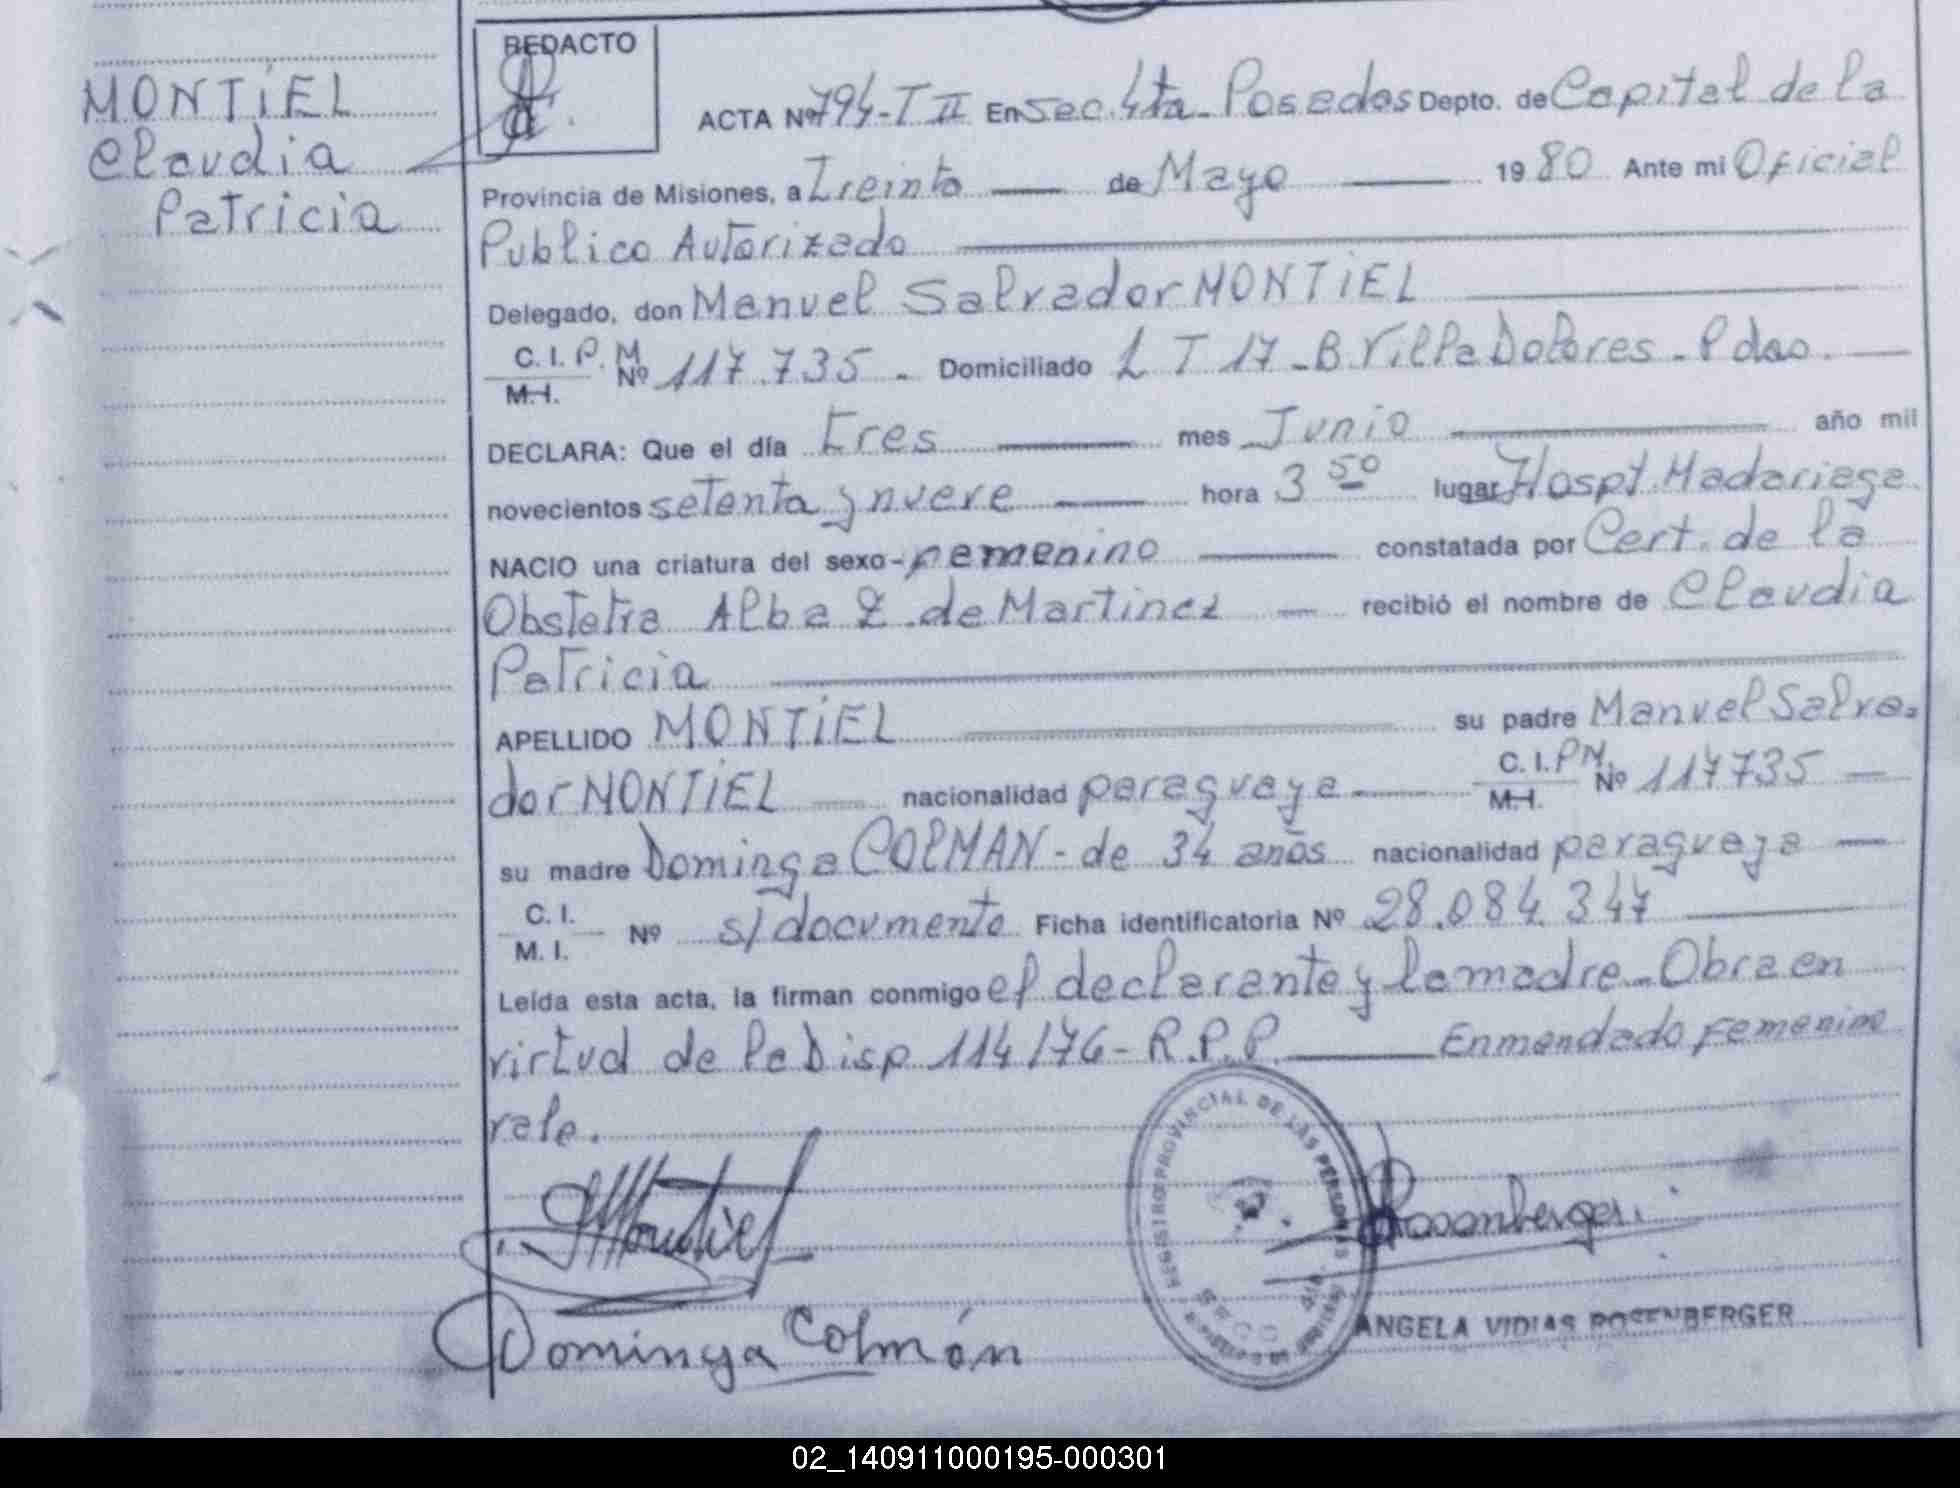 MONTIEL
Claudia
Patricia
REDACTO
ACTA Nº 794-T II En Sec. 4ta. Posadas Depto. de Capital de la
Provincia de Misiones, a Treinta de Mayo 1980 Ante mi Oficial
Publico Autorizado
Delegado, don Manuel Salvador MONTIEL
C. I. P. M. Nº 117.735 - Domiciliado LT 17 - B. Villa Dolores - Pdas.
M. I.
DECLARA: Que el día Tres mes Junio año mil
novecientos setenta y nueve hora 3 50 lugar Hospt. Madariaga
NACIO una criatura del sexo - femenino constatada por Cert. de la
Obstetra Alba Z. de Martinez recibió el nombre de Claudia
Patricia
APELLIDO MONTIEL su padre Manuel Salva-
dor MONTIEL nacionalidad paraguaya C. I. P M. Nº 117735
M. I.
su madre Dominga COLMAN - de 34 años nacionalidad paraguaya
C. I.
M. I. Nº s/documento Ficha identificatoria Nº 28.084.347
Leída esta acta, la firman conmigo el declarante y la madre - Obra en
virtud de la Disp 114/76 - R.P.P. Enmendado femenino
vale.
Montiel
Rosenberger
REGISTRO PROVINCIAL DE LAS PERSONAS
ANGELA VIDIAS ROSENBERGER
Dominga Colmán
02_140911000195-000301